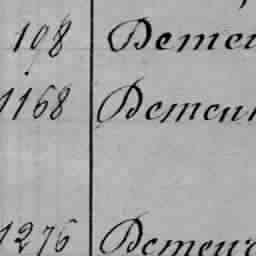 198 Demeu
1168 Demeur
1276 Demeur